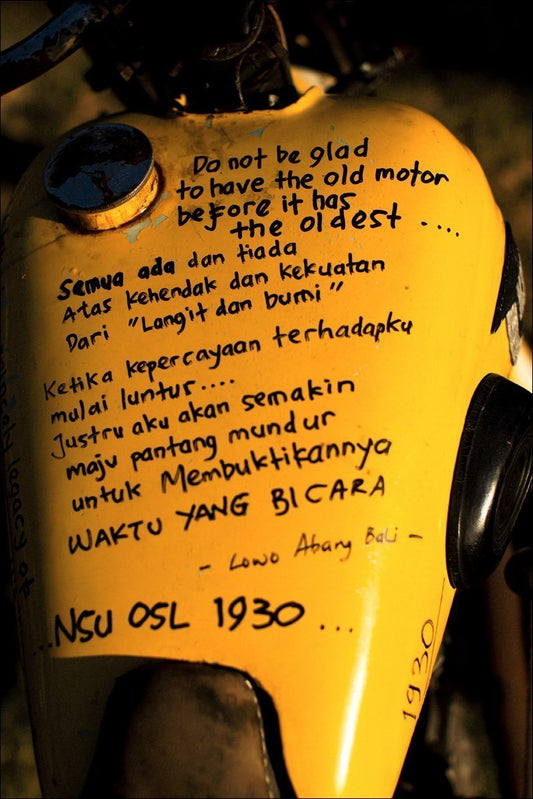 Do not be glad
to have the old motor
before it has
the oldest ....
Semua ada dan tiada
Atas kehendak dan kekuatan
Dari "Langit dan bumi"
Ketika kepercayaan terhadapku
mulai luntur....
Justru aku akan semakin
maju pantang mundur
untuk Membuktikannya
WAKTU YANG BICARA
- Lowo Abang Bali -
...NSU OSL 1930 ...
1930
legacy of